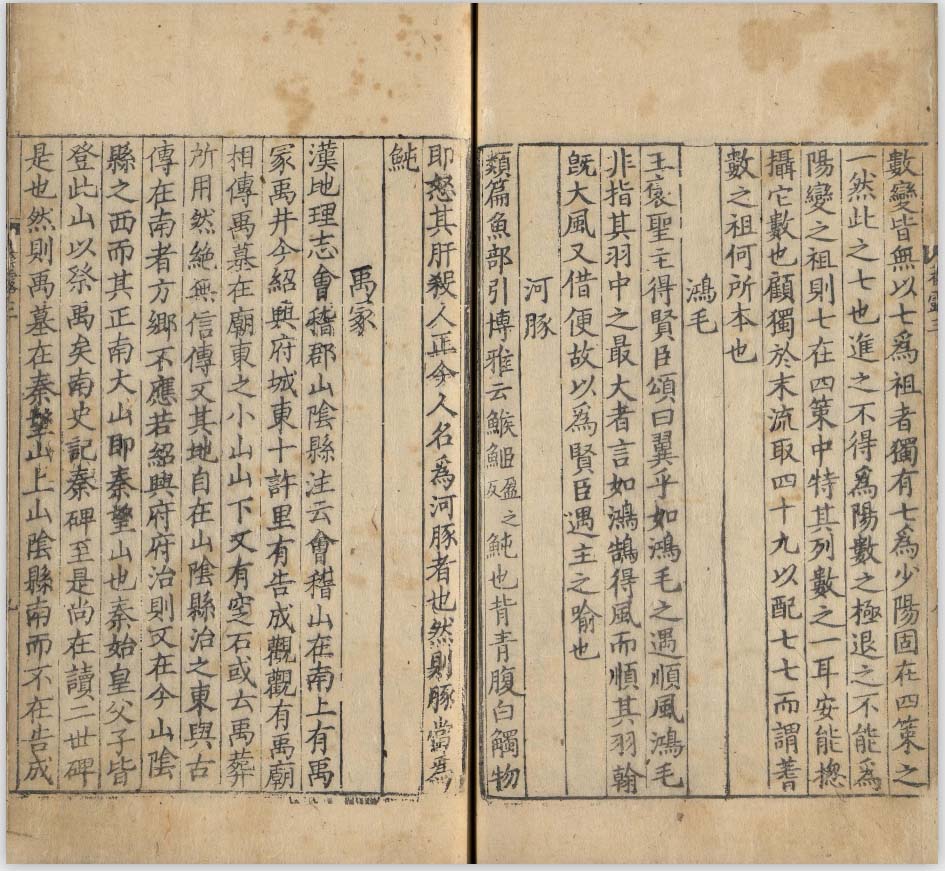 數變皆無以七爲祖者獨有七爲少陽固在四策之
一然此之七也進之不得爲陽數之極退之不能爲
陽變之祖則七在四策中特其列數之一耳安能揔
攝它數也顧獨於末流取四十九以配七七而謂蓍
數之祖何所本也
鴻毛
王褒聖主得賢臣頌曰翼乎如鴻毛之遇順風鴻毛
非指其羽中之最大者言如鴻鵠得風而順其羽翰
旣大風又借便故以為賢臣遇主之喻也
河豚
類篇魚部引博雅云鯸䱌盈之反魨也背青腹白觸物
即怒其肝殺人正今人名爲河豚者也然則豚當爲
魨
禹冢
漢地理志會稽郡山陰縣注云會稽山在南上有禹
冢禹井今紹興府城東十許里有告成觀觀有禹廟
相傳禹墓在廟東之小山山下又有窆石或云禹葬
所用然絶無信傳又其地自在山陰縣治之東與古
傳在南者方鄉不應若紹興府府治則又在今山陰
縣之西而其正南大山即秦望山也秦始皇父子皆
登此山以祭禹矣南史記秦碑至是尚在讀二世碑
是也然則禹墓在秦望山上山陰縣南而不在告成